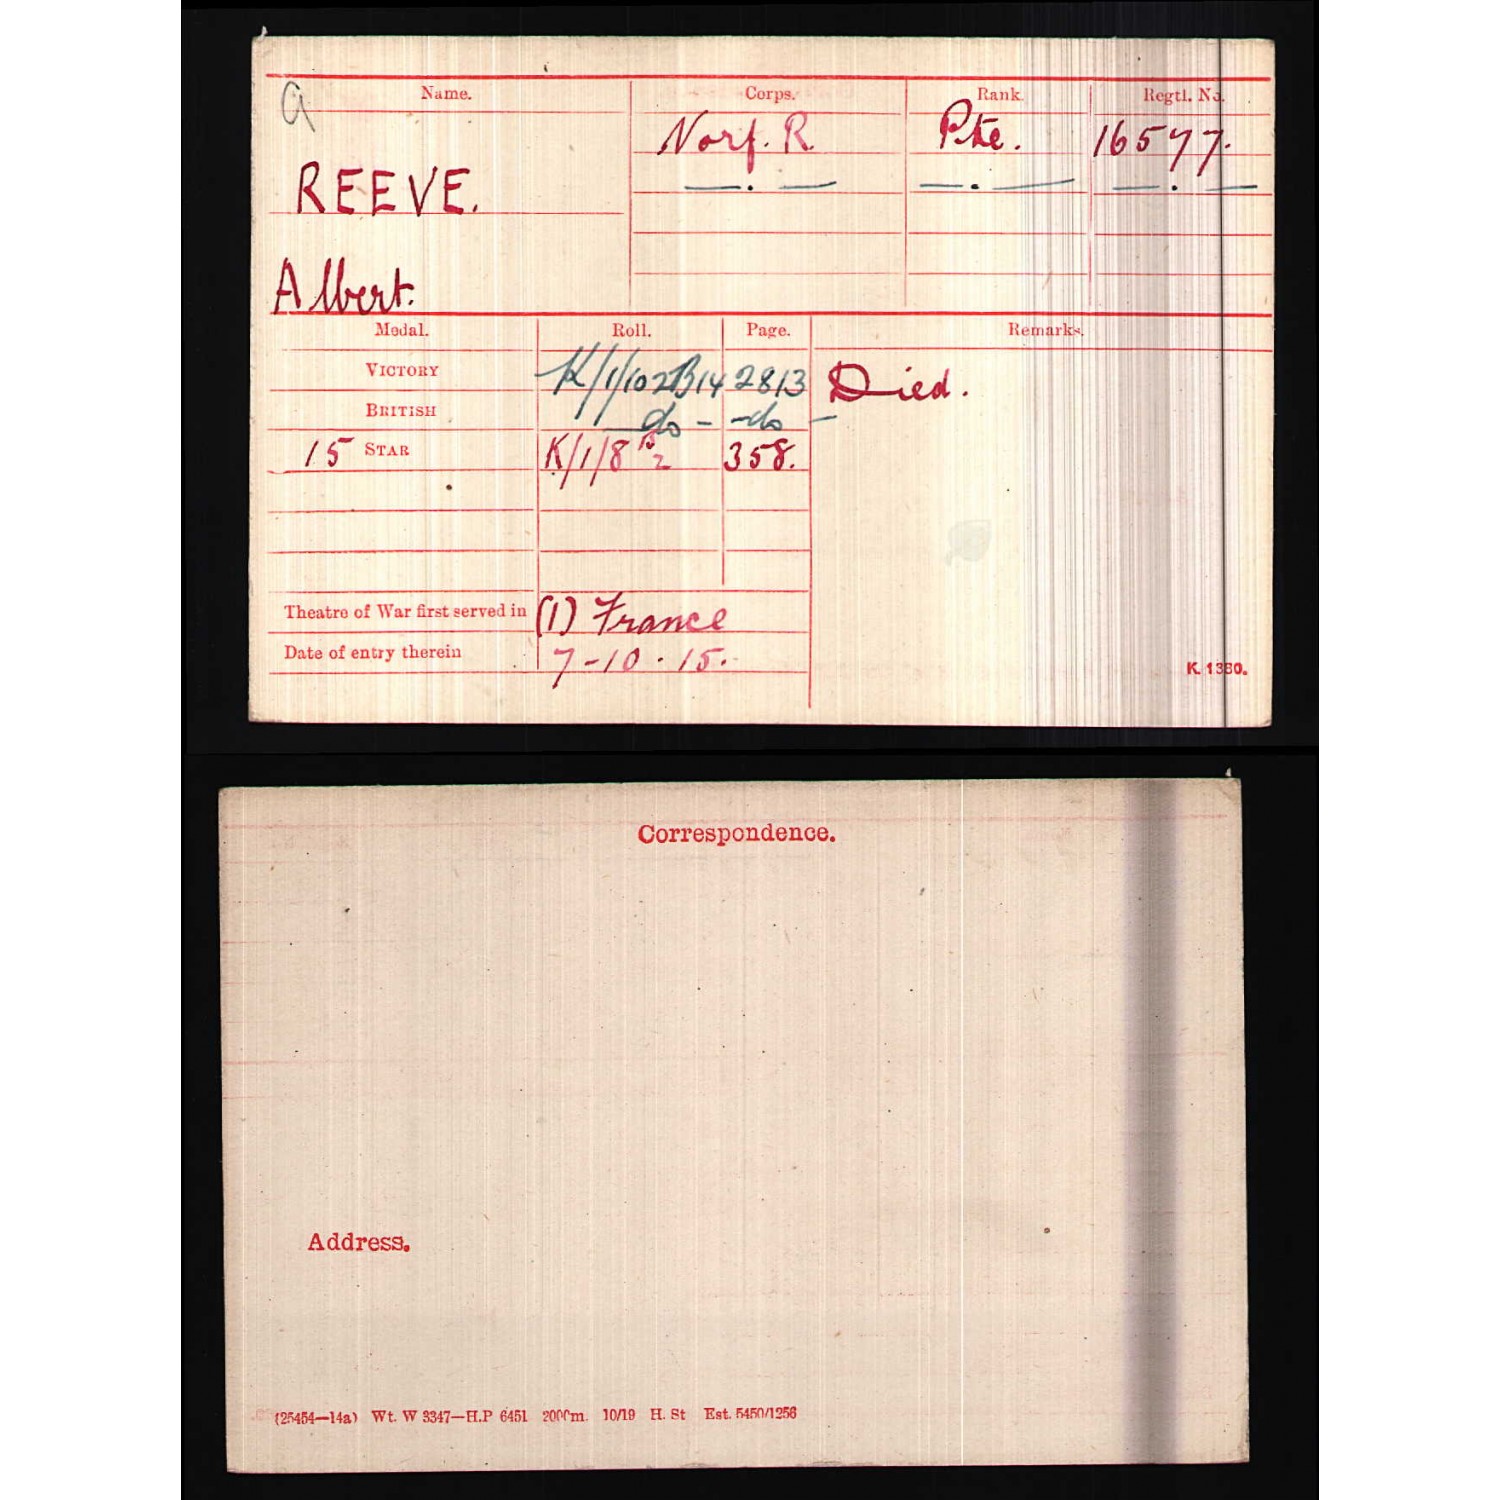 a
Name. Corps. Rank. Regtl. No.
Norf. R. Pte. 16577.
REEVE. —.— —.— —.—
Albert.
Medal. Roll. Page. Remarks.
VICTORY K/1/102B14 2813 Died.
BRITISH —do— —do—
15 STAR K/1/8 B2 358.
Theatre of War first served in (1) France
Date of entry therein 7-10.15.
K. 1380.
Correspondence.
Address.
(25454—14a) Wt. W 3347—H.P 6451 2000m. 10/19 H. St Est. 5450/1256